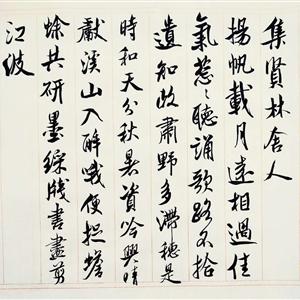 集賢林舍人
揚帆載月遠相過佳
氣葱々聽誦歌路不拾
遺知政肅野多滯穗是
時和天分秋暑資吟興晴
獻溪山入醉哦便捉蟾
蜍共研墨綵牋書盡剪
江波